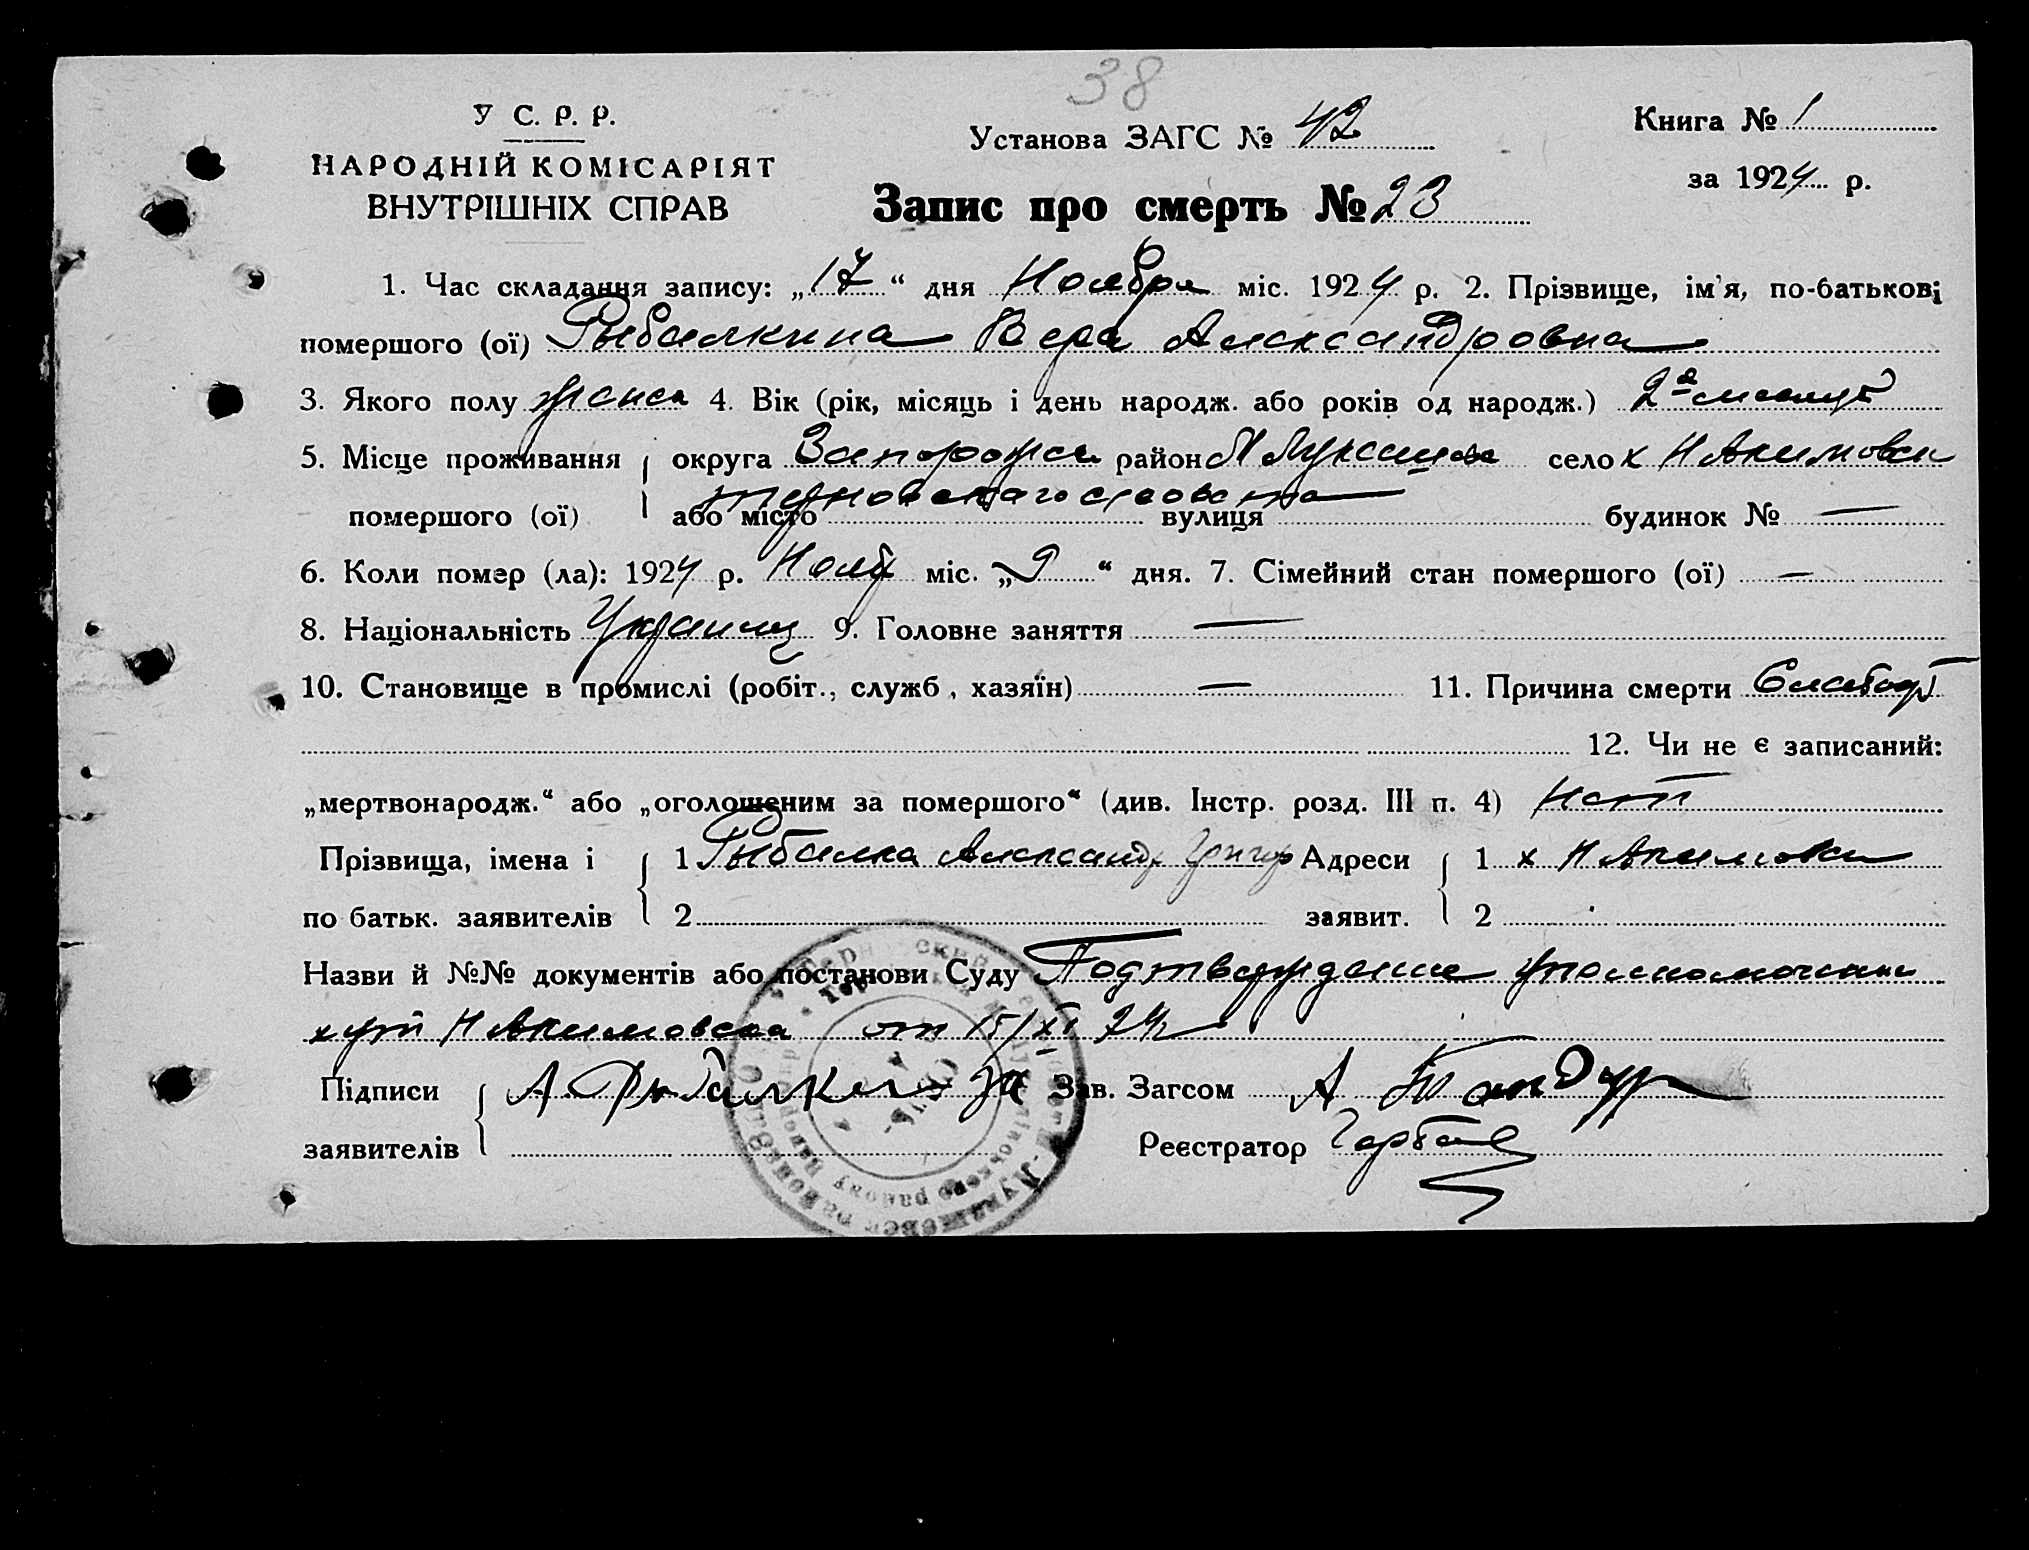 38
У С. Р. Р.
НАРОДНІЙ КОМІСАРІЯТ
ВНУТРІШНІХ СПРАВ
Установа ЗАГС № 42
Книга № 1
за 1924 р.
Запис про смерть № 23
1. Час складання запису: „17“ дня Ноября міс. 1924 р. 2. Прізвище, ім'я, по-батькові
помершого (ої) Рыбалкина Вера Александровна
3. Якого полу женск 4. Вік (рік, місяць і день народж. або років од народж.) 2
5. Місце проживання округа Запорожск район Лукашев село х Н Акимовка
Терновского сельсовета
помершого (ої) або місто вулиця будинок № —
6. Коли помер (ла): 1924 р. Нояб міс. „9“ дня. 7. Сімейний стан помершого (ої) —
8. Національність Украинц 9. Головне заняття —
10. Становище в промислі (робіт., служб, хазяїн) — 11. Причина смерти Слабост
12. Чи не є записаний:
„мертвонародж.“ або „оголошеним за помершого“ (див. Інстр. розд. III п. 4) Нет
Прізвища, імена і 1 Рыбалка Александр Григор Адреси 1 х Н Акимовка
по батьк. заявителів 2 заявит. 2
Назви й №№ документів або постанови Суду Подтверждение уполномоченн
хут Н Акимовска от 15/XI 24
Підписи А. Рыбалка за Зав. Загсом А Бандур
заявителів Реєстратор Горба